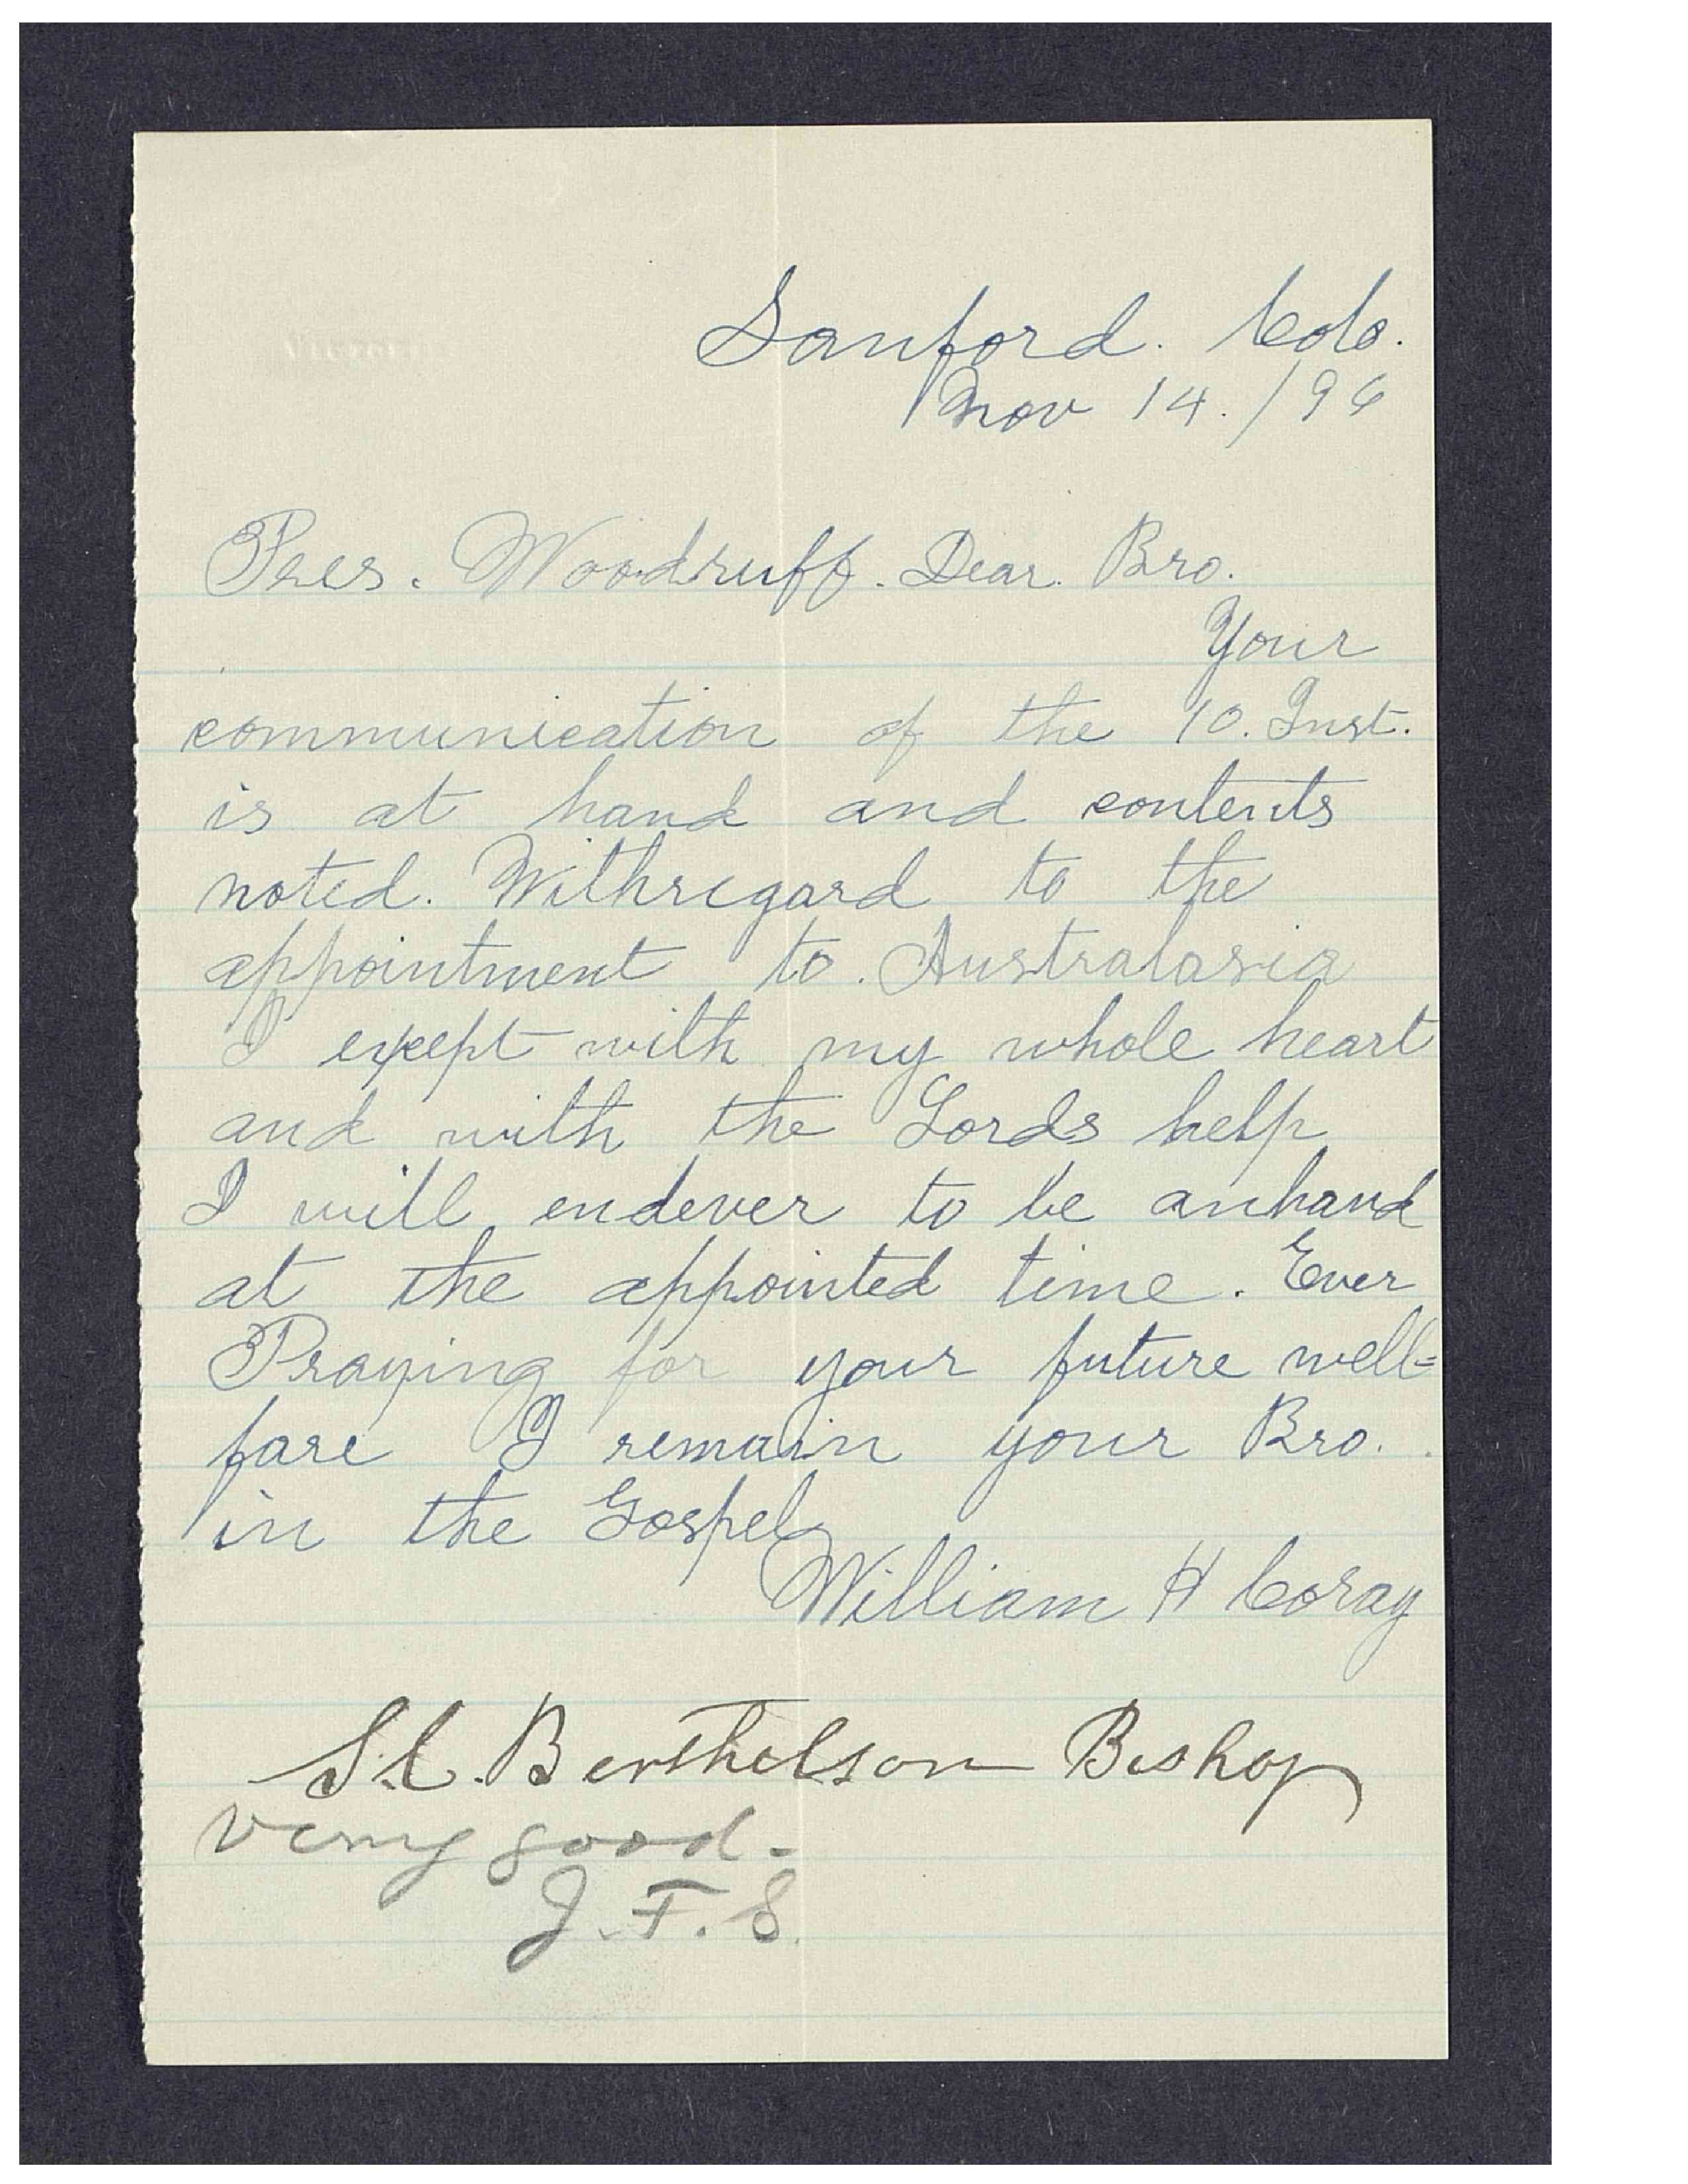 Sanford. Colo.
Nov 14. /96
Pres. Woodruff. Dear. Bro.
Your
communication of the 10. Inst.
is at hand and contents
noted. Withregard to the
appointment to. Australasia
I except with my whole heart
and with the Lords help
I will endever to be anhand
at the appointed time. Ever
Praying for your future well=
fare I remain your Bro.
in the Gospel
William H Coray
S. C. Berthelson Bishop
very good.
J. F. S.